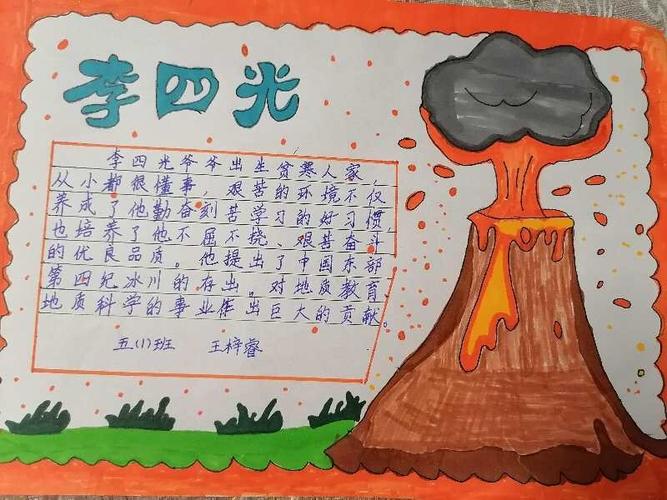 李四光
李四光爷爷出生贫寒人家,
从小都很懂事,艰苦的环境不仅
养成了他勤奋刻苦学习的好习惯,
也培养了他不屈不挠、艰苦奋斗
的优良品质。他提出了中国东部
第四纪冰川的存出。对地质教育、
地质科学的事业作出巨大的贡献。
五(1)班 王梓睿